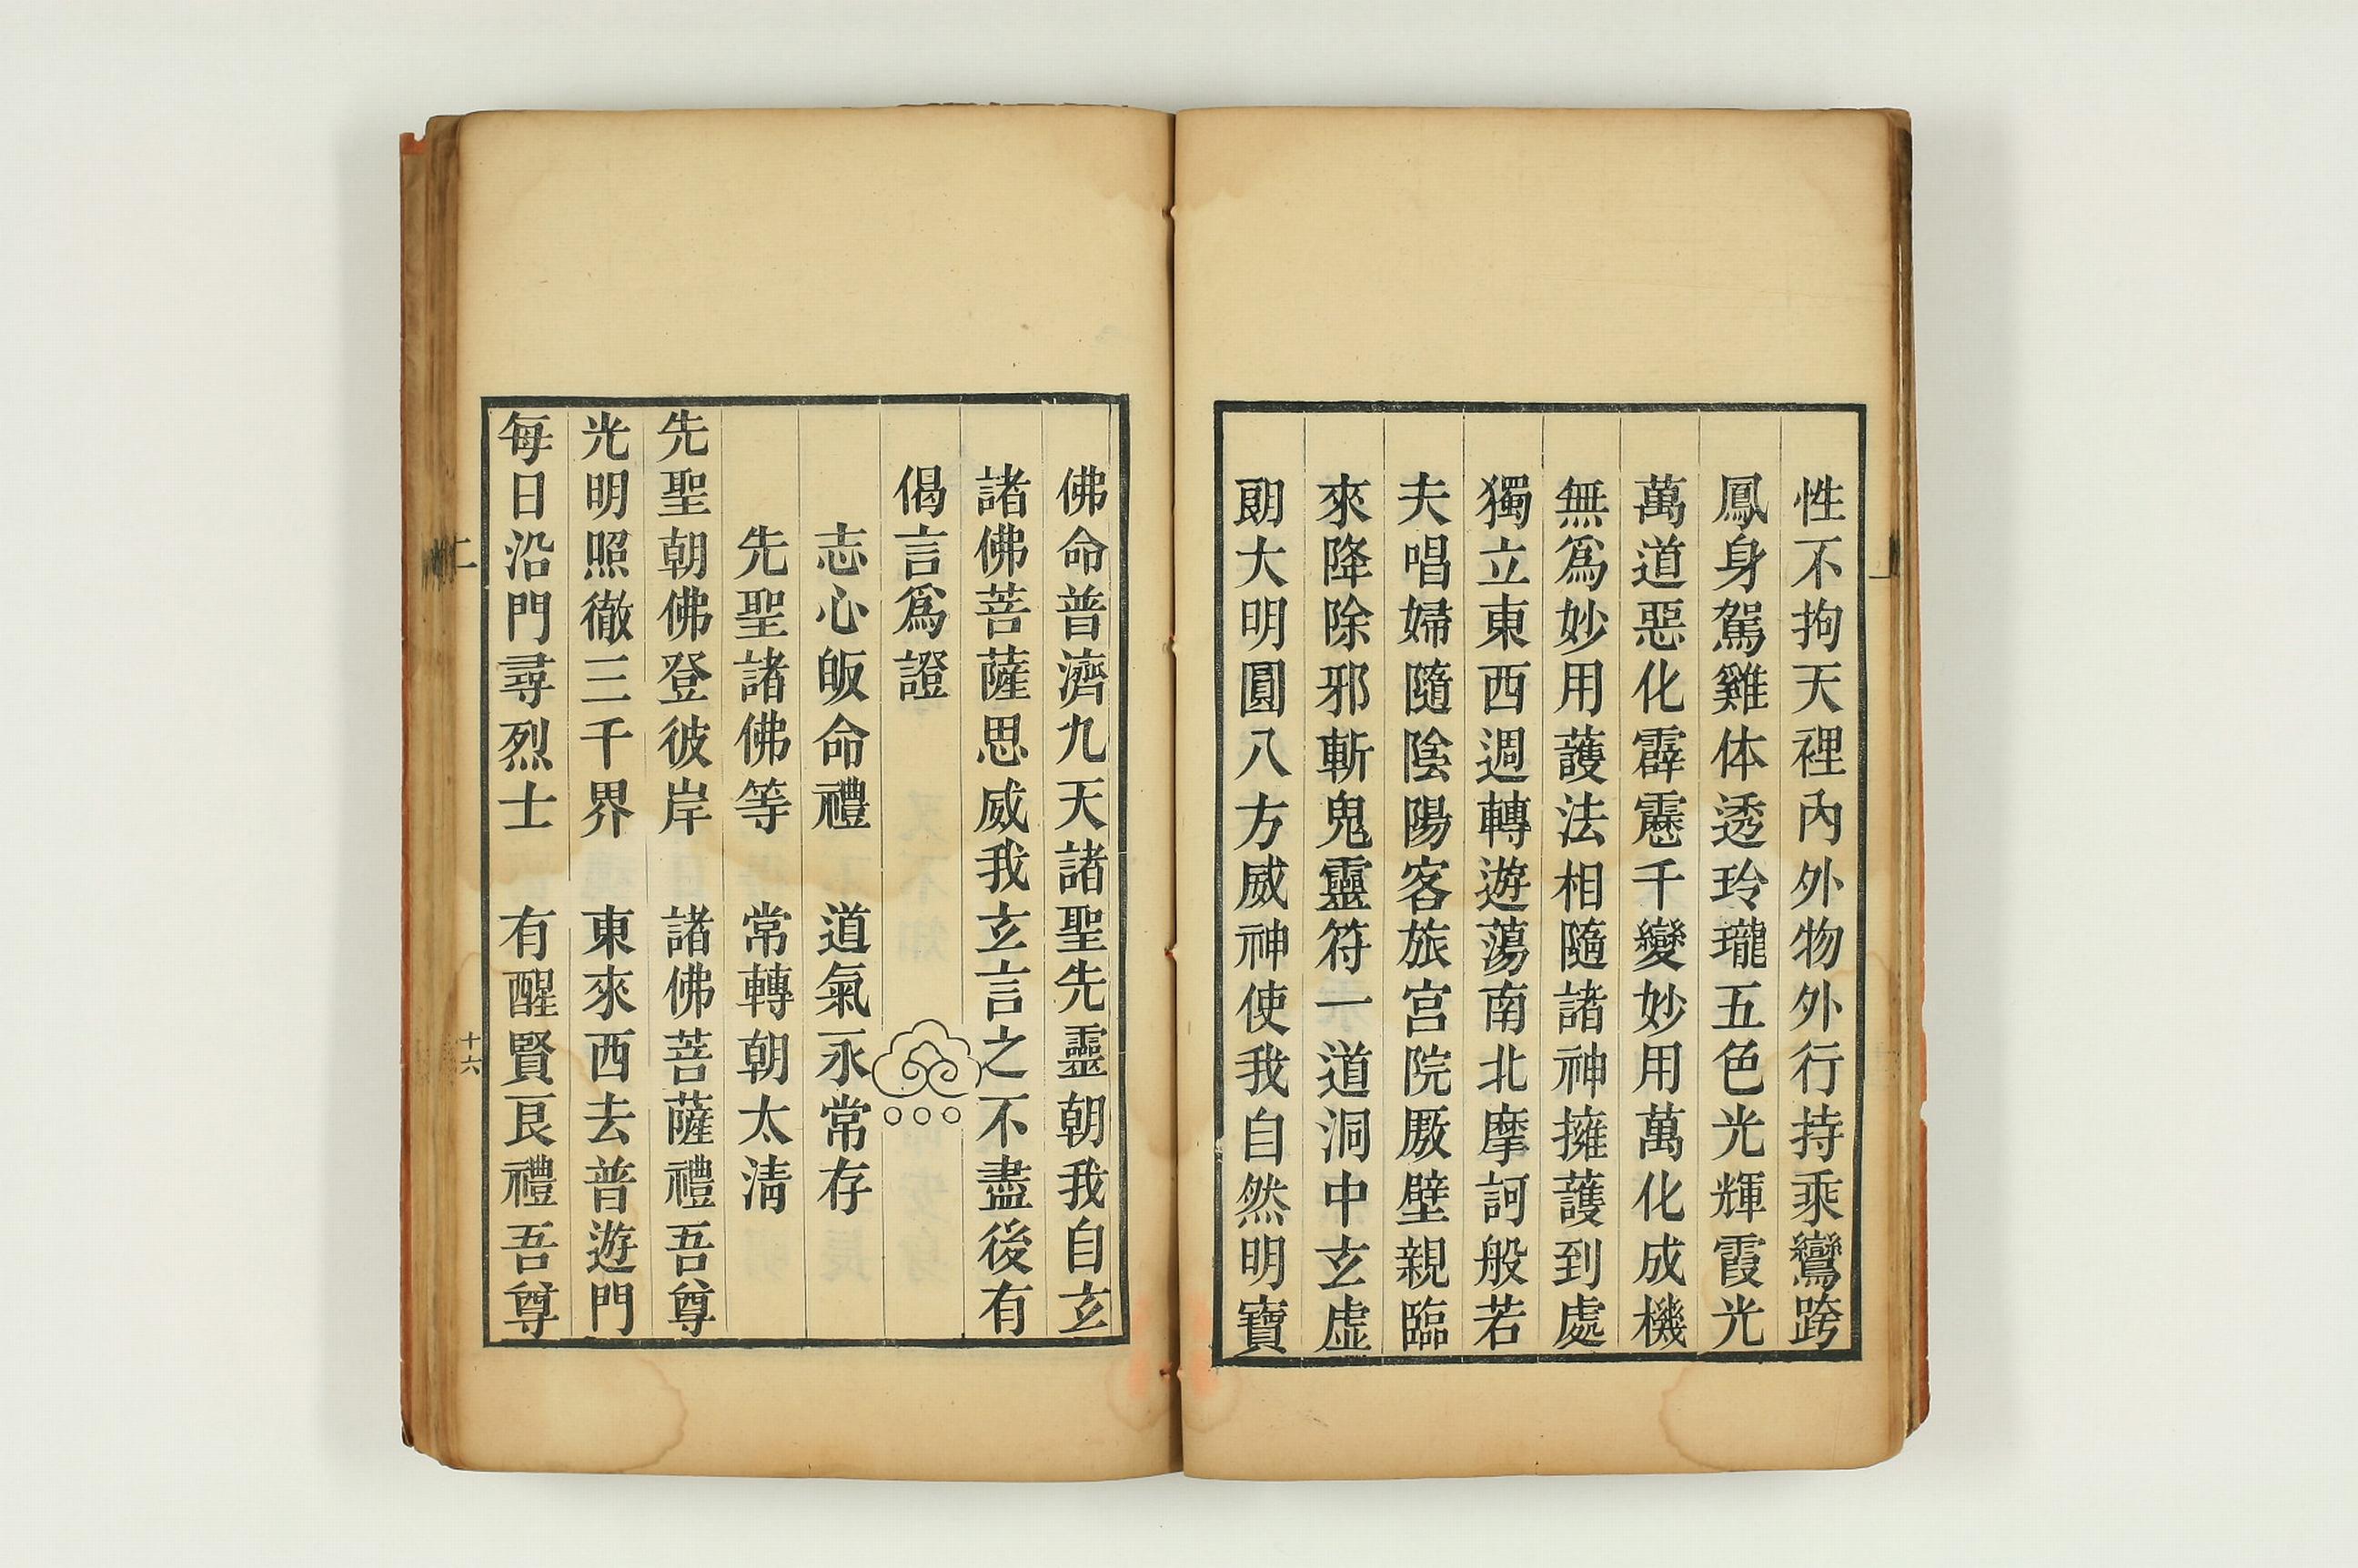 性不拘天裡內外物外行持乘鸞跨
鳳身駕雞体透玲瓏五色光輝霞光
萬道惡化霹靂千變妙用萬化成機
無爲妙用護法相隨諸神擁護到處
獨立東西週轉遊蕩南北摩訶般若
夫唱婦隨陰陽客旅宮院厫壁親臨
來降除邪斬鬼靈符一道洞中玄虛
朗大明圓八方威神使我自然明寶
佛命普濟九天諸聖先靈朝我自玄
諸佛菩薩思威我玄言之不盡後有
偈言爲證
志心皈命禮 道氣永常存
先聖諸佛等 常轉朝太淸
先聖朝佛登彼岸 諸佛菩薩禮吾尊
光明照徹三千界 東來西去普遊門
每日沿門尋烈士 有醒賢良禮吾尊
仁
十六